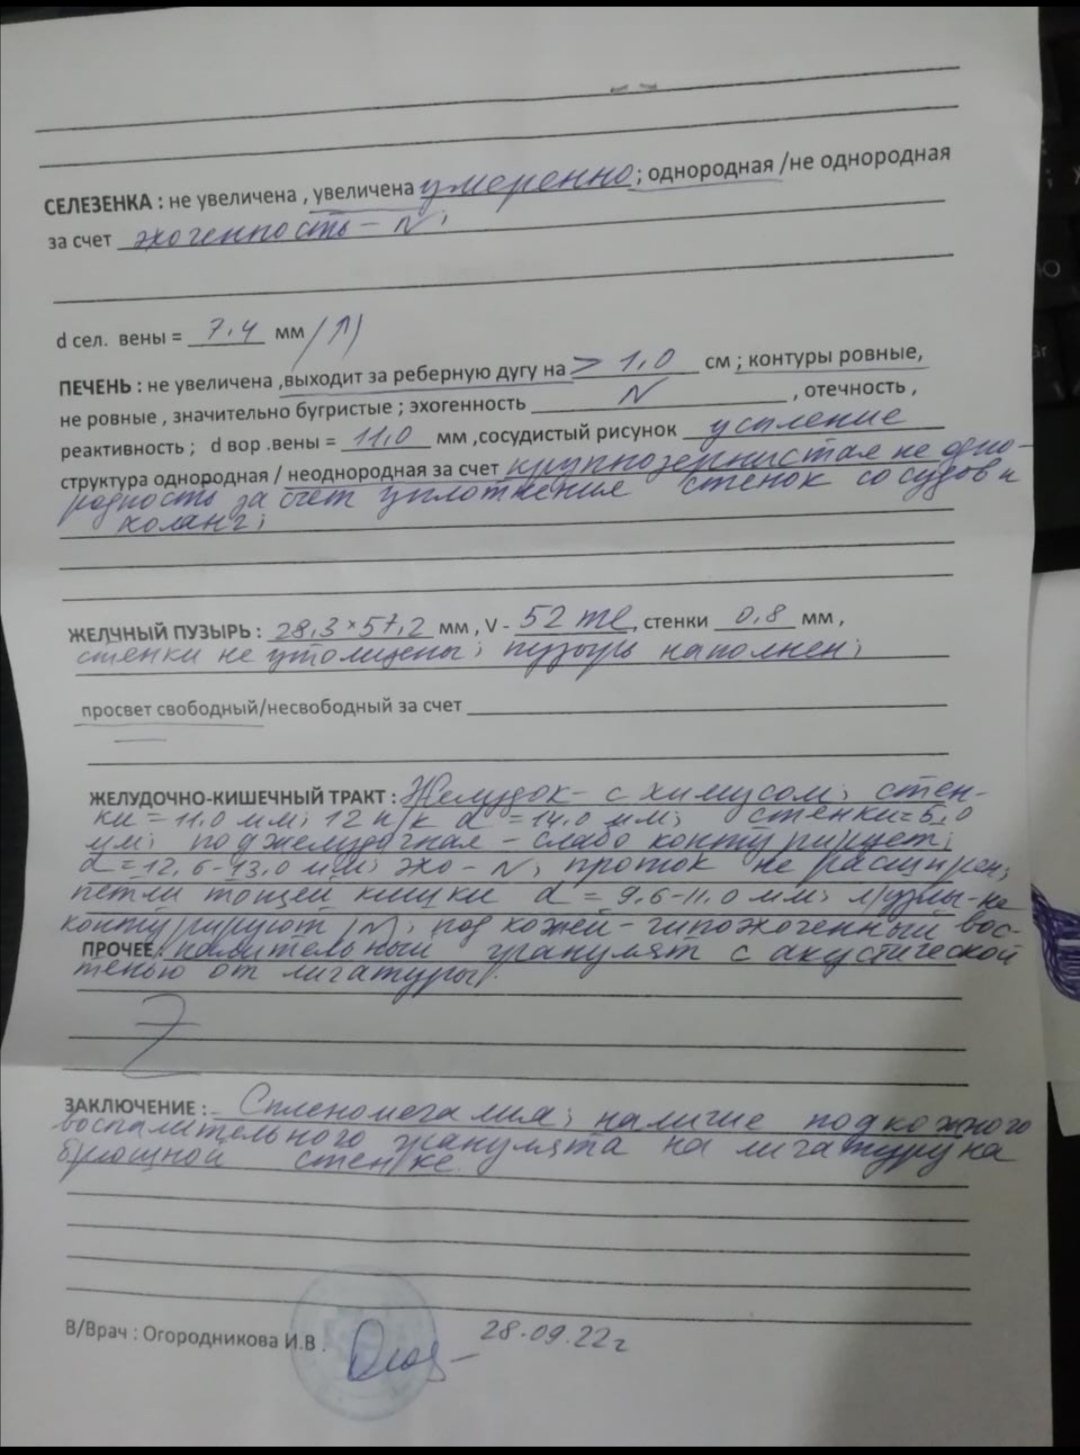 СЕЛЕЗЕНКА : не увеличена , увеличена умеренно ; однородная /не однородная
за счет эхогенность – N ;
d сел. вены = 7,4 мм /↑/
ПЕЧЕНЬ : не увеличена ,выходит за реберную дугу на > 1,0 см ; контуры ровные,
не ровные , значительно бугристые ; эхогенность N , отечность ,
реактивность ; d вор .вены = 11,0 мм ,сосудистый рисунок усиление
структура однородная / неоднородная за счет крупнозернистая не одно-
родность за счет уплотнения стенок сосудов и
холанг;
ЖЕЛЧНЫЙ ПУЗЫРЬ : 28,3 × 57,2 мм , V - 52 ml , стенки 0,8 мм ,
стенки не утолщены; пузырь наполнен;
просвет свободный/несвободный за счет
ЖЕЛУДОЧНО-КИШЕЧНЫЙ ТРАКТ : Желудок – с химусом; стен-
ки = 11,0 мм; 12 п/к d = 14,0 мм; стенки = 5,0
мм; поджелудочная – слабо контурирует;
d = 12,6 - 13,0 мм; эхо – N; проток не расширен;
петли тощей кишки d = 9,6 - 11,0 мм; л/узлы - не
контурируют /N/; под кожей – гипоэхогенный вос-
ПРОЧЕЕ : палительный гранулят с акустической
тенью от лигатуры.
ЗАКЛЮЧЕНИЕ : – Спленомегалия; наличие подкожного
воспалительного гранулята на лигатуру на
брюшной стенке.
В/Врач : Огородникова И.В .
28.09.22г